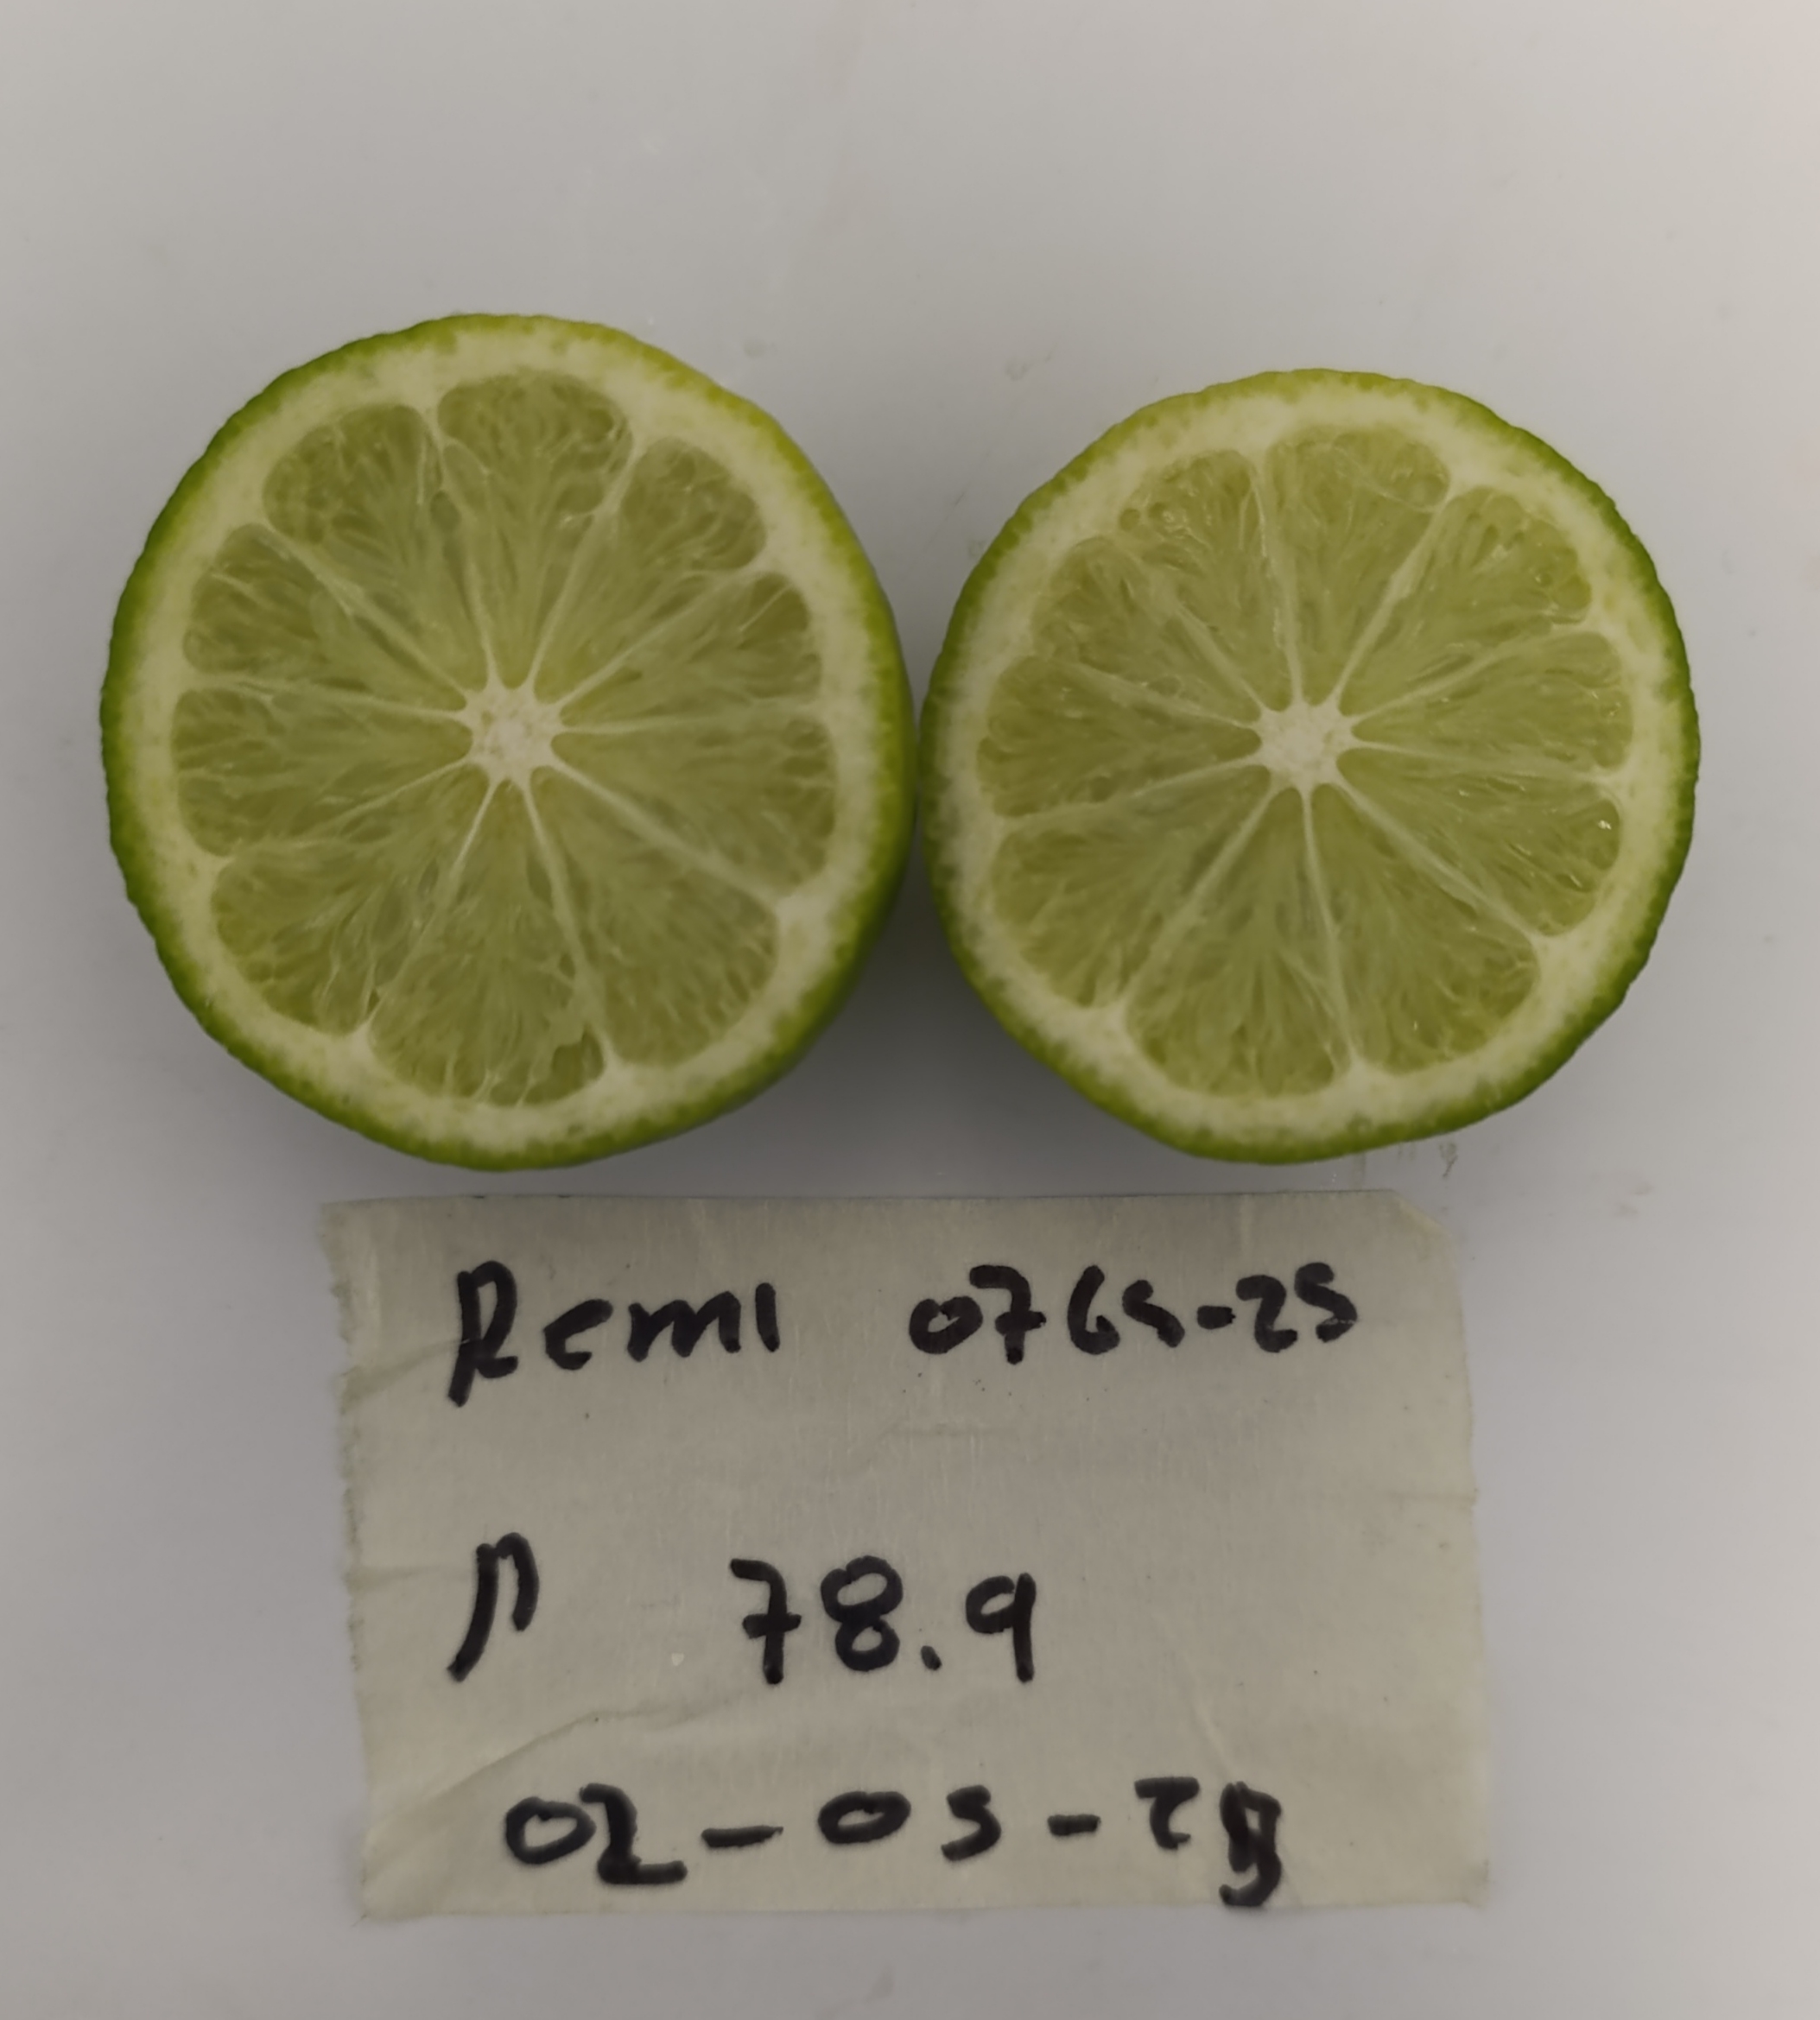 Remi 0765-25
P 78.9
02-05-25